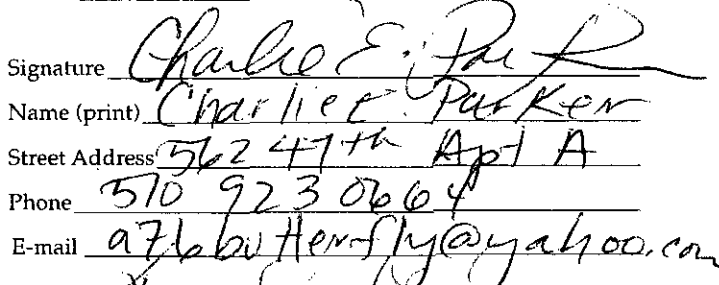 Signature Charlie E. Parker
Name (print) Charlie E. Parker
Street Address 562 47th Apt A
Phone 510 923 0664
E-mail a76butterfly@yahoo.com